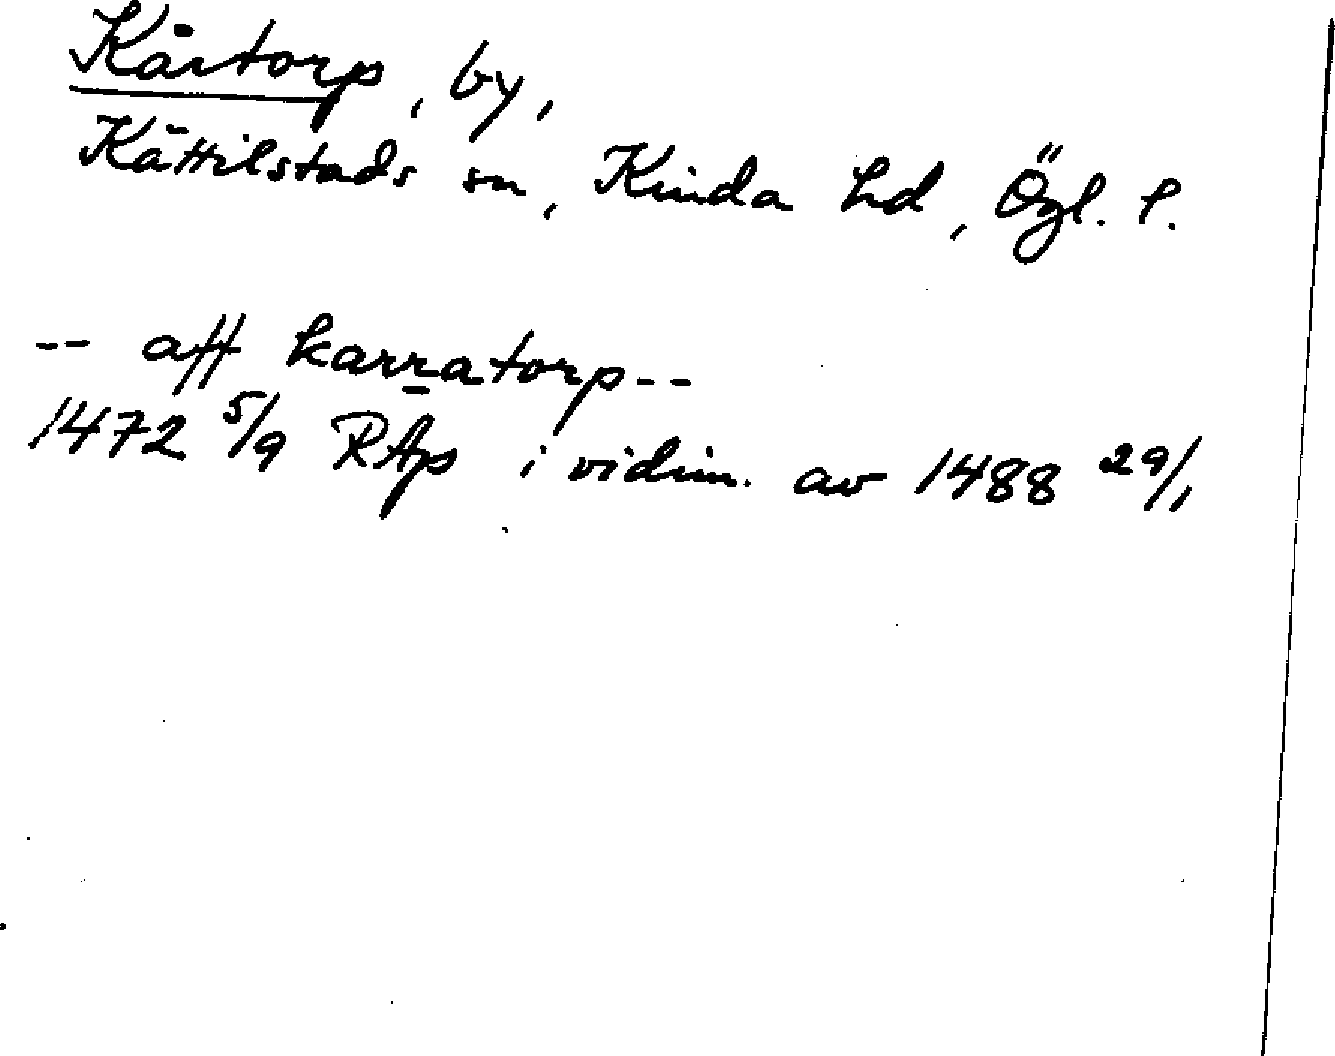 Kårtorp, by,
Kättilstads sn, Kinda hd, Ögl. l.
-- aff karratorp--
1472 5/9 RAp i vidim. av 1488 29/1